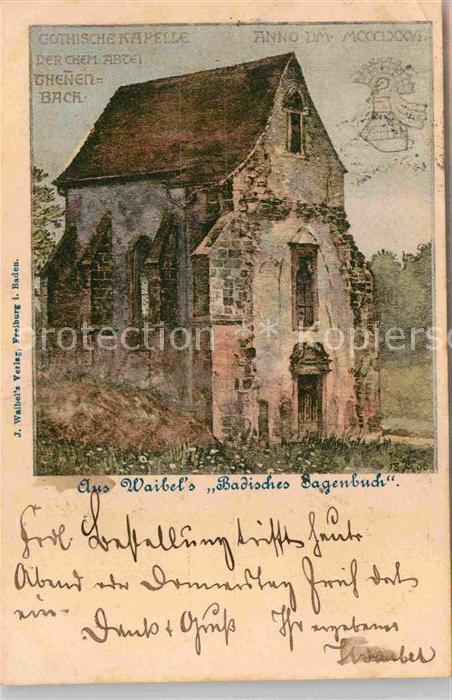 GOTHISCHE KAPELLE ANNO DM· MCCCLXXVI.
DER CHEM. ABTEI
THEÑEN=
BACH.
J. Waibel's Verlag, Freiburg i. Baden.
protection ** Kopiers
18 96
Aus Waibel's „Badisches Sagenbuch“.
Frdl. Bestellung trifft heute
Abend oder Donnerstag früh dort
ein.
Dank & Gruß Ihr ergebener